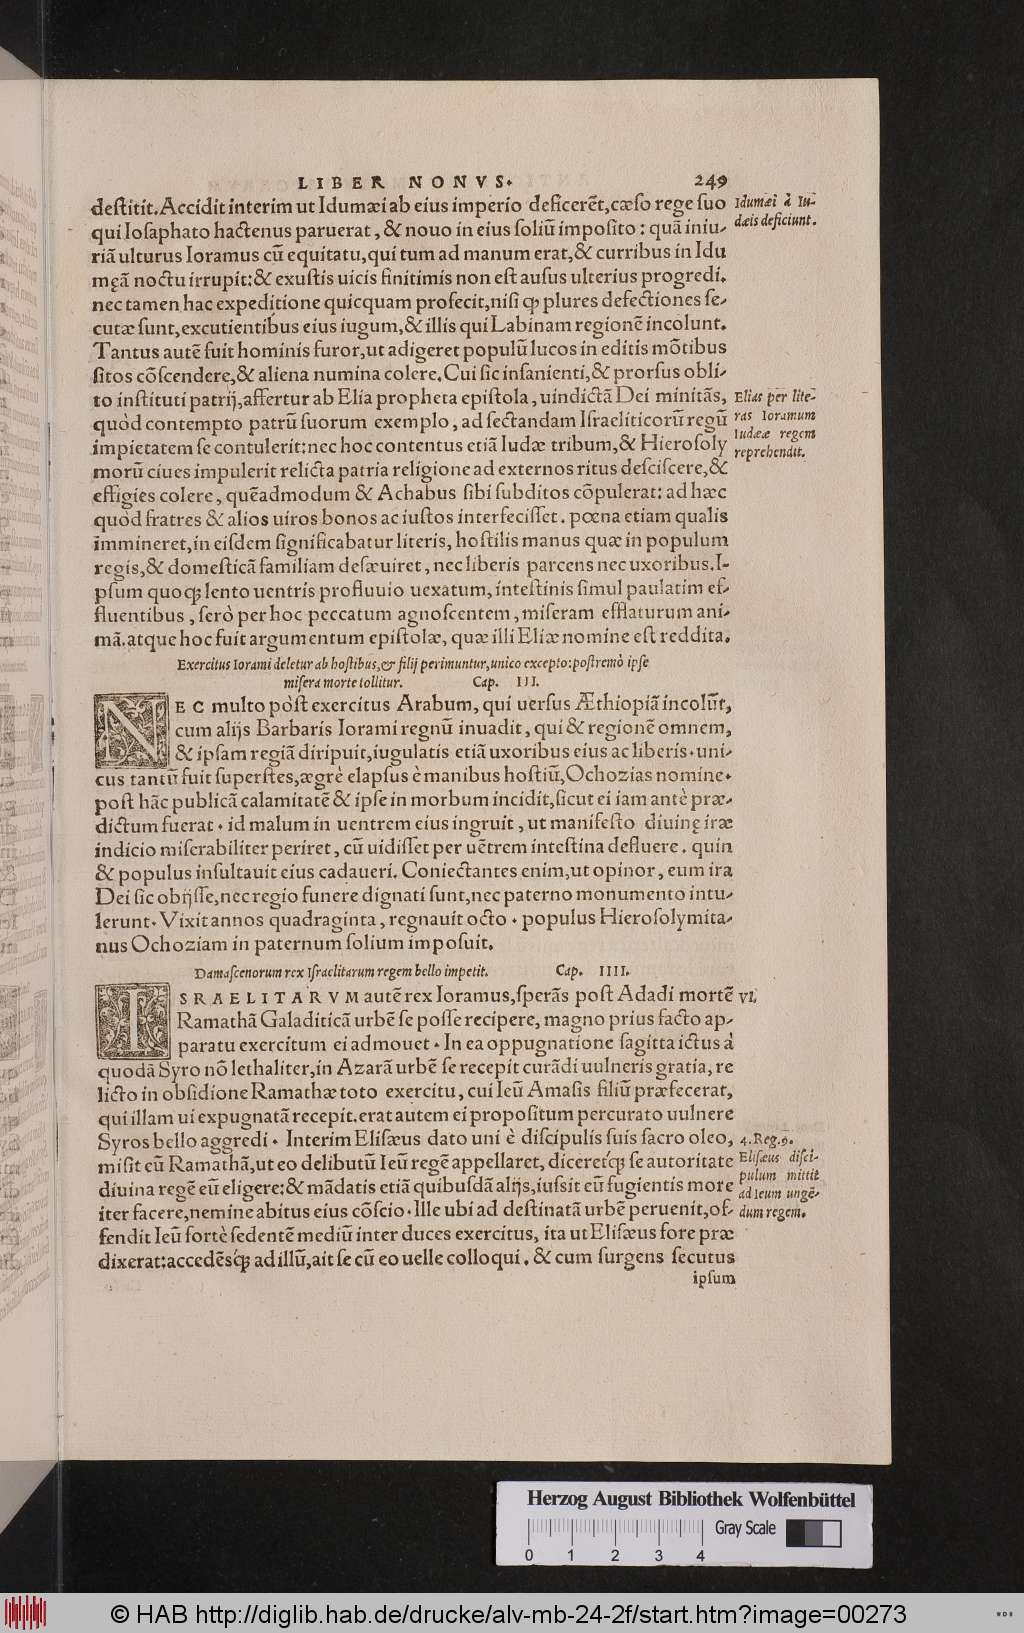 LIBER NONVS. 249
destitit. Accidit interim ut Idumæi ab eius imperio deficerẽt, cæso rege suo
qui Iosaphato hactenus paruerat, & nouo in eius soliũ imposito: quã iniu-
riã ulturus Ioramus cũ equitatu, qui tum ad manum erat, & curribus in Idu
męã noctu irrupit: & exustis uicis finitimis non est ausus ulterius progredi.
nec tamen hac expeditione quicquam profecit, nisi ꝙ plures defectiones se-
cutæ sunt, excutientibus eius iugum, & illis qui Labinam regionẽ incolunt.
Tantus autẽ fuit hominis furor, ut adigeret populũ lucos in editis mõtibus
sitos cõscendere, & aliena numina colere. Cui sic insanienti, & prorsus obli-
to instituti patrij, affertur ab Elia propheta epistola, uindictã Dei minitãs,
quòd contempto patrũ suorum exemplo, ad sectandam Israeliticorũ regũ
impietatem se contulerit: nec hoc contentus etiã Iudæ tribum, & Hierosoly
morũ ciues impulerit relicta patria religione ad externos ritus desciscere, &
effigies colere, quẽadmodum & Achabus sibi subditos cõpulerat: ad hæc
quòd fratres & alios uiros bonos ac iustos interfecisset. pœna etiam qualis
immineret, in eisdem significabatur literis, hostilis manus quæ in populum
regis, & domesticã familiam desæuiret, nec liberis parcens nec uxoribus. I-
psum quoq; lento uentris profluuio uexatum, intestinis simul paulatim ef-
fluentibus, serò per hoc peccatum agnoscentem, miseram efflaturum ani-
mã. atque hoc fuit argumentum epistolæ, quæ illi Eliæ nomine est reddita.
Idumæi à Iu-
dæis deficiunt.
Elias per lite-
ras Ioramum
Iudææ regem
reprehendit.
Exercitus Iorami deletur ab hostibus, & filij perimuntur, unico excepto: postremò ipse
misera morte tollitur. Cap. III.
NEC multo pòst exercitus Arabum, qui uersus Æthiopiã incolũt,
cum alijs Barbaris Iorami regnũ inuadit, qui & regionẽ omnem,
& ipsam regiã diripuit, iugulatis etiã uxoribus eius ac liberis. uni-
cus tantũ fuit superstes, ægrè elapsus è manibus hostiũ, Ochozias nomine.
post hãc publicã calamitatẽ & ipse in morbum incidit, sicut ei iam antè præ-
dictum fuerat. id malum in uentrem eius ingruit, ut manifesto diuinę iræ
indicio miserabiliter periret, cũ uidisset per uẽtrem intestina defluere. quin
& populus insultauit eius cadaueri. Coniectantes enim, ut opinor, eum ira
Dei sic obijsse, nec regio funere dignati sunt, nec paterno monumento intu-
lerunt. Vixit annos quadraginta, regnauit octo. populus Hierosolymita-
nus Ochoziam in paternum solium imposuit.
Damascenorum rex Israelitarum regem bello impetit. Cap. IIII.
ISRAELITARVM autẽ rex Ioramus, sperãs post Adadi mortẽ VI.
Ramathã Galaditicã urbẽ se posse recipere, magno prius facto ap-
paratu exercitum ei admouet. In ea oppugnatione sagitta ictus à
quodã Syro nõ lethaliter, in Azarã urbẽ se recepit curãdi uulneris gratia, re
licto in obsidione Ramathæ toto exercitu, cui Ieũ Amasis filiũ præfecerat,
qui illam ui expugnatã recepit. erat autem ei propositum percurato uulnere
Syros bello aggredi. Interim Elisæus dato uni è discipulis suis sacro oleo,
misit eũ Ramathã, ut eo delibutũ Ieũ regẽ appellaret, diceretq́; se autoritate
diuina regẽ eũ eligere: & mãdatis etiã quibusdã alijs, iussit eũ fugientis more
iter facere, nemine abitus eius cõscio. Ille ubi ad destinatã urbẽ peruenit, of-
fendit Ieũ fortè sedentẽ mediũ inter duces exercitus, ita ut Elisæus fore præ
dixerat: accedẽsq́; ad illũ, ait se cũ eo uelle colloqui. & cum surgens secutus
ipsum
4. Reg. 9.
Elisæus disci-
pulum mittit
ad Ieum ungẽ-
dum regem.
Herzog August Bibliothek Wolfenbüttel
Gray Scale
0 1 2 3 4
© HAB http://diglib.hab.de/drucke/alv-mb-24-2f/start.htm?image=00273